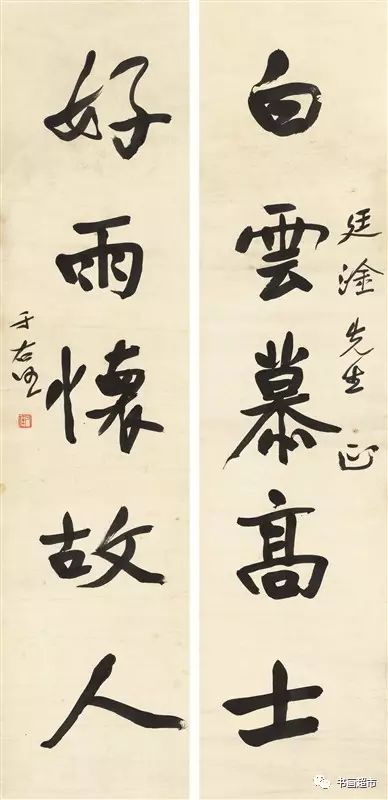 白雲慕高士
廷淦先生正
好雨懷故人
于右任
书画超市